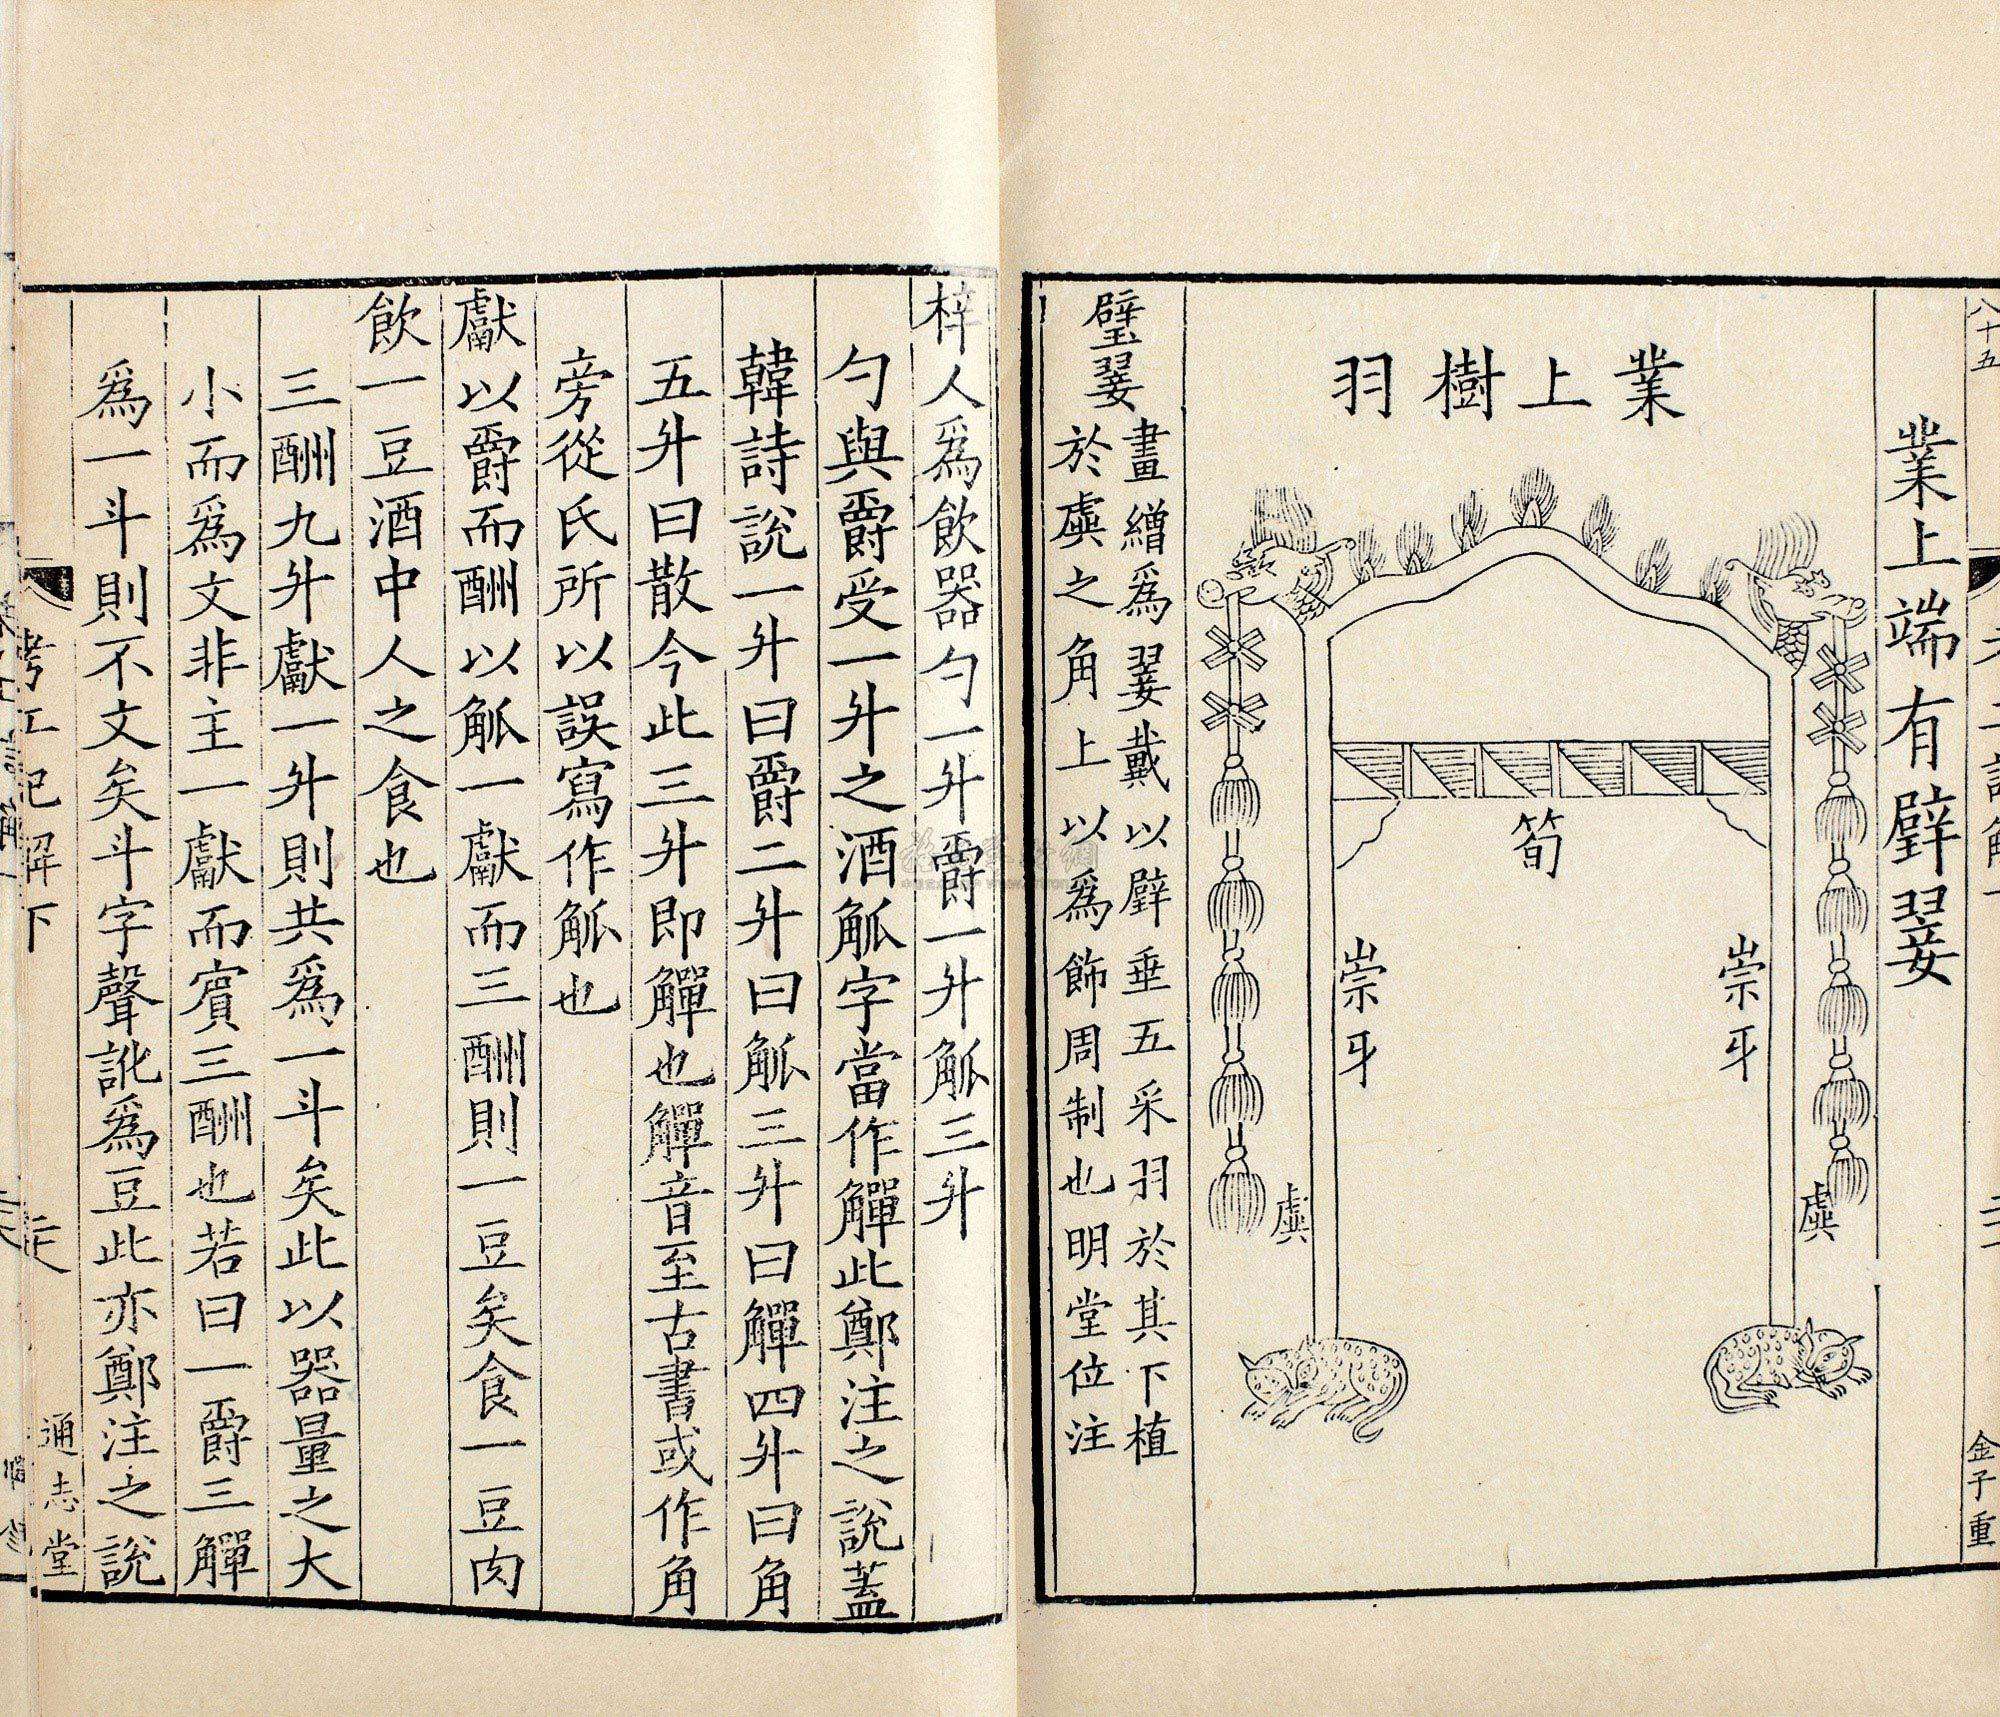 八十五
金子重
業上端有璧翣
業上樹羽
筍
崇牙
崇牙
虡
虡
璧翣
畫繒為翣戴以璧垂五采羽於其下植
於虡之角上以為飾周制也明堂位注
梓人為飲器勺一升爵一升觚三升
勺與爵受一升之酒觚字當作觶此鄭注之說蓋
韓詩說一升曰爵二升曰觚三升曰觶四升曰角
五升曰散今此三升即觶也觶音至古書或作角
旁從氏所以誤寫作觚也
獻以爵而酬以觚一獻而三酬則一豆矣食一豆肉
飲一豆酒中人之食也
三酬九升獻一升則共為一斗矣此以器量之大
小而為文非主一獻而賓三酬也若曰一爵三觶
為一斗則不文矣斗字聲訛為豆此亦鄭注之說
考工記解下
通志堂